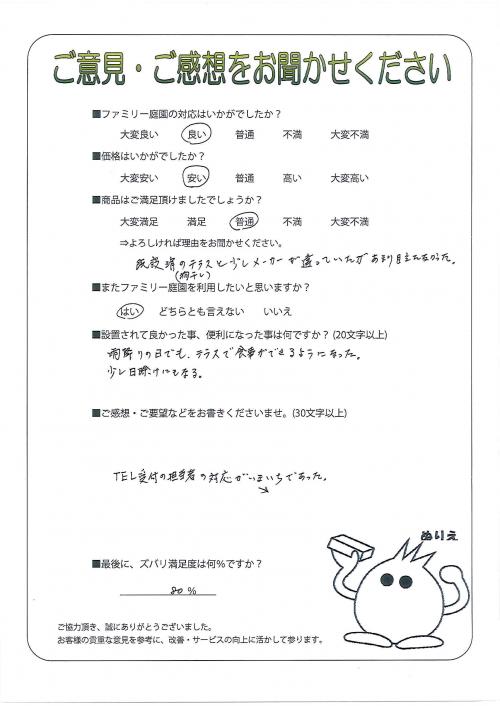 ご意見・ご感想をお聞かせください
■ファミリー庭園の対応はいかがでしたか?
大変良い 良い 普通 不満 大変不満
■価格はいかがでしたか?
大変安い 安い 普通 高い 大変高い
■商品はご満足頂けましたでしょうか?
大変満足 満足 普通 不満 大変不満
⇒よろしければ理由をお聞かせください。
のテラスと少しメーカーが違っていたがあまり目立たなかった。
■またファミリー庭園を利用したいと思いますか?
はい どちらとも言えない いいえ
■設置されて良かった事、便利になった事は何ですか? (20文字以上)
雨降りの日でも、テラスで食事ができるようになった。
少し日除けにもなる。
■ご感想・ご要望などをお書きくださいませ。(30文字以上)
TEL受付の担当者の対応がいまいちであった。
ぬりえ
■最後に、ズバリ満足度は何%ですか?
80 %
ご協力頂き、誠にありがとうございました。
お客様の貴重な意見を参考に、改善・サービスの向上に活かして参ります。